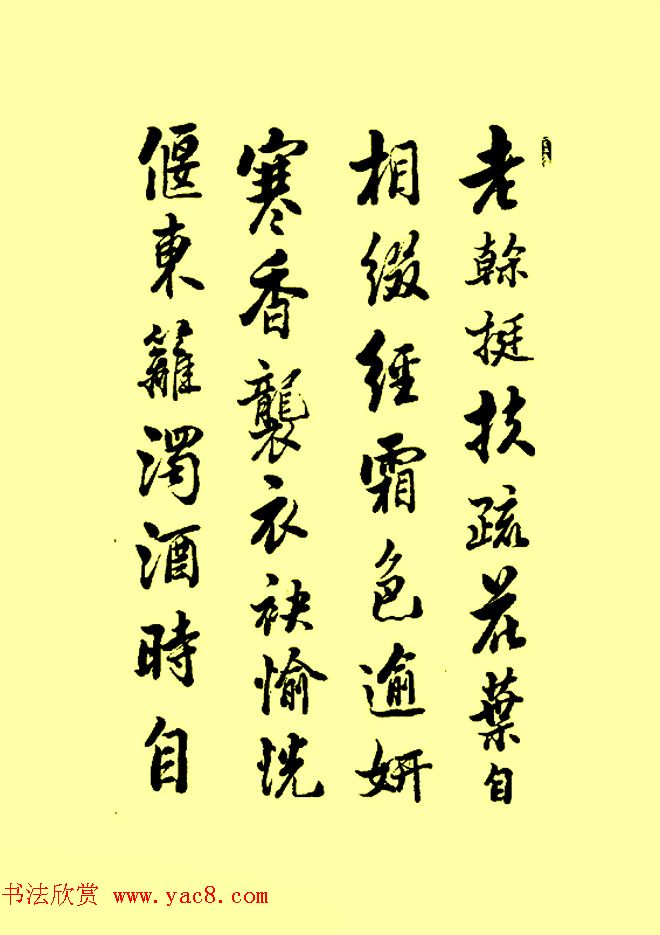 老榦挺扶疏花葉自
相綴經霜色逾妍
寒香襲衣袂愉恍
偃東籬濁酒時自
书法欣赏 www.yac8.com